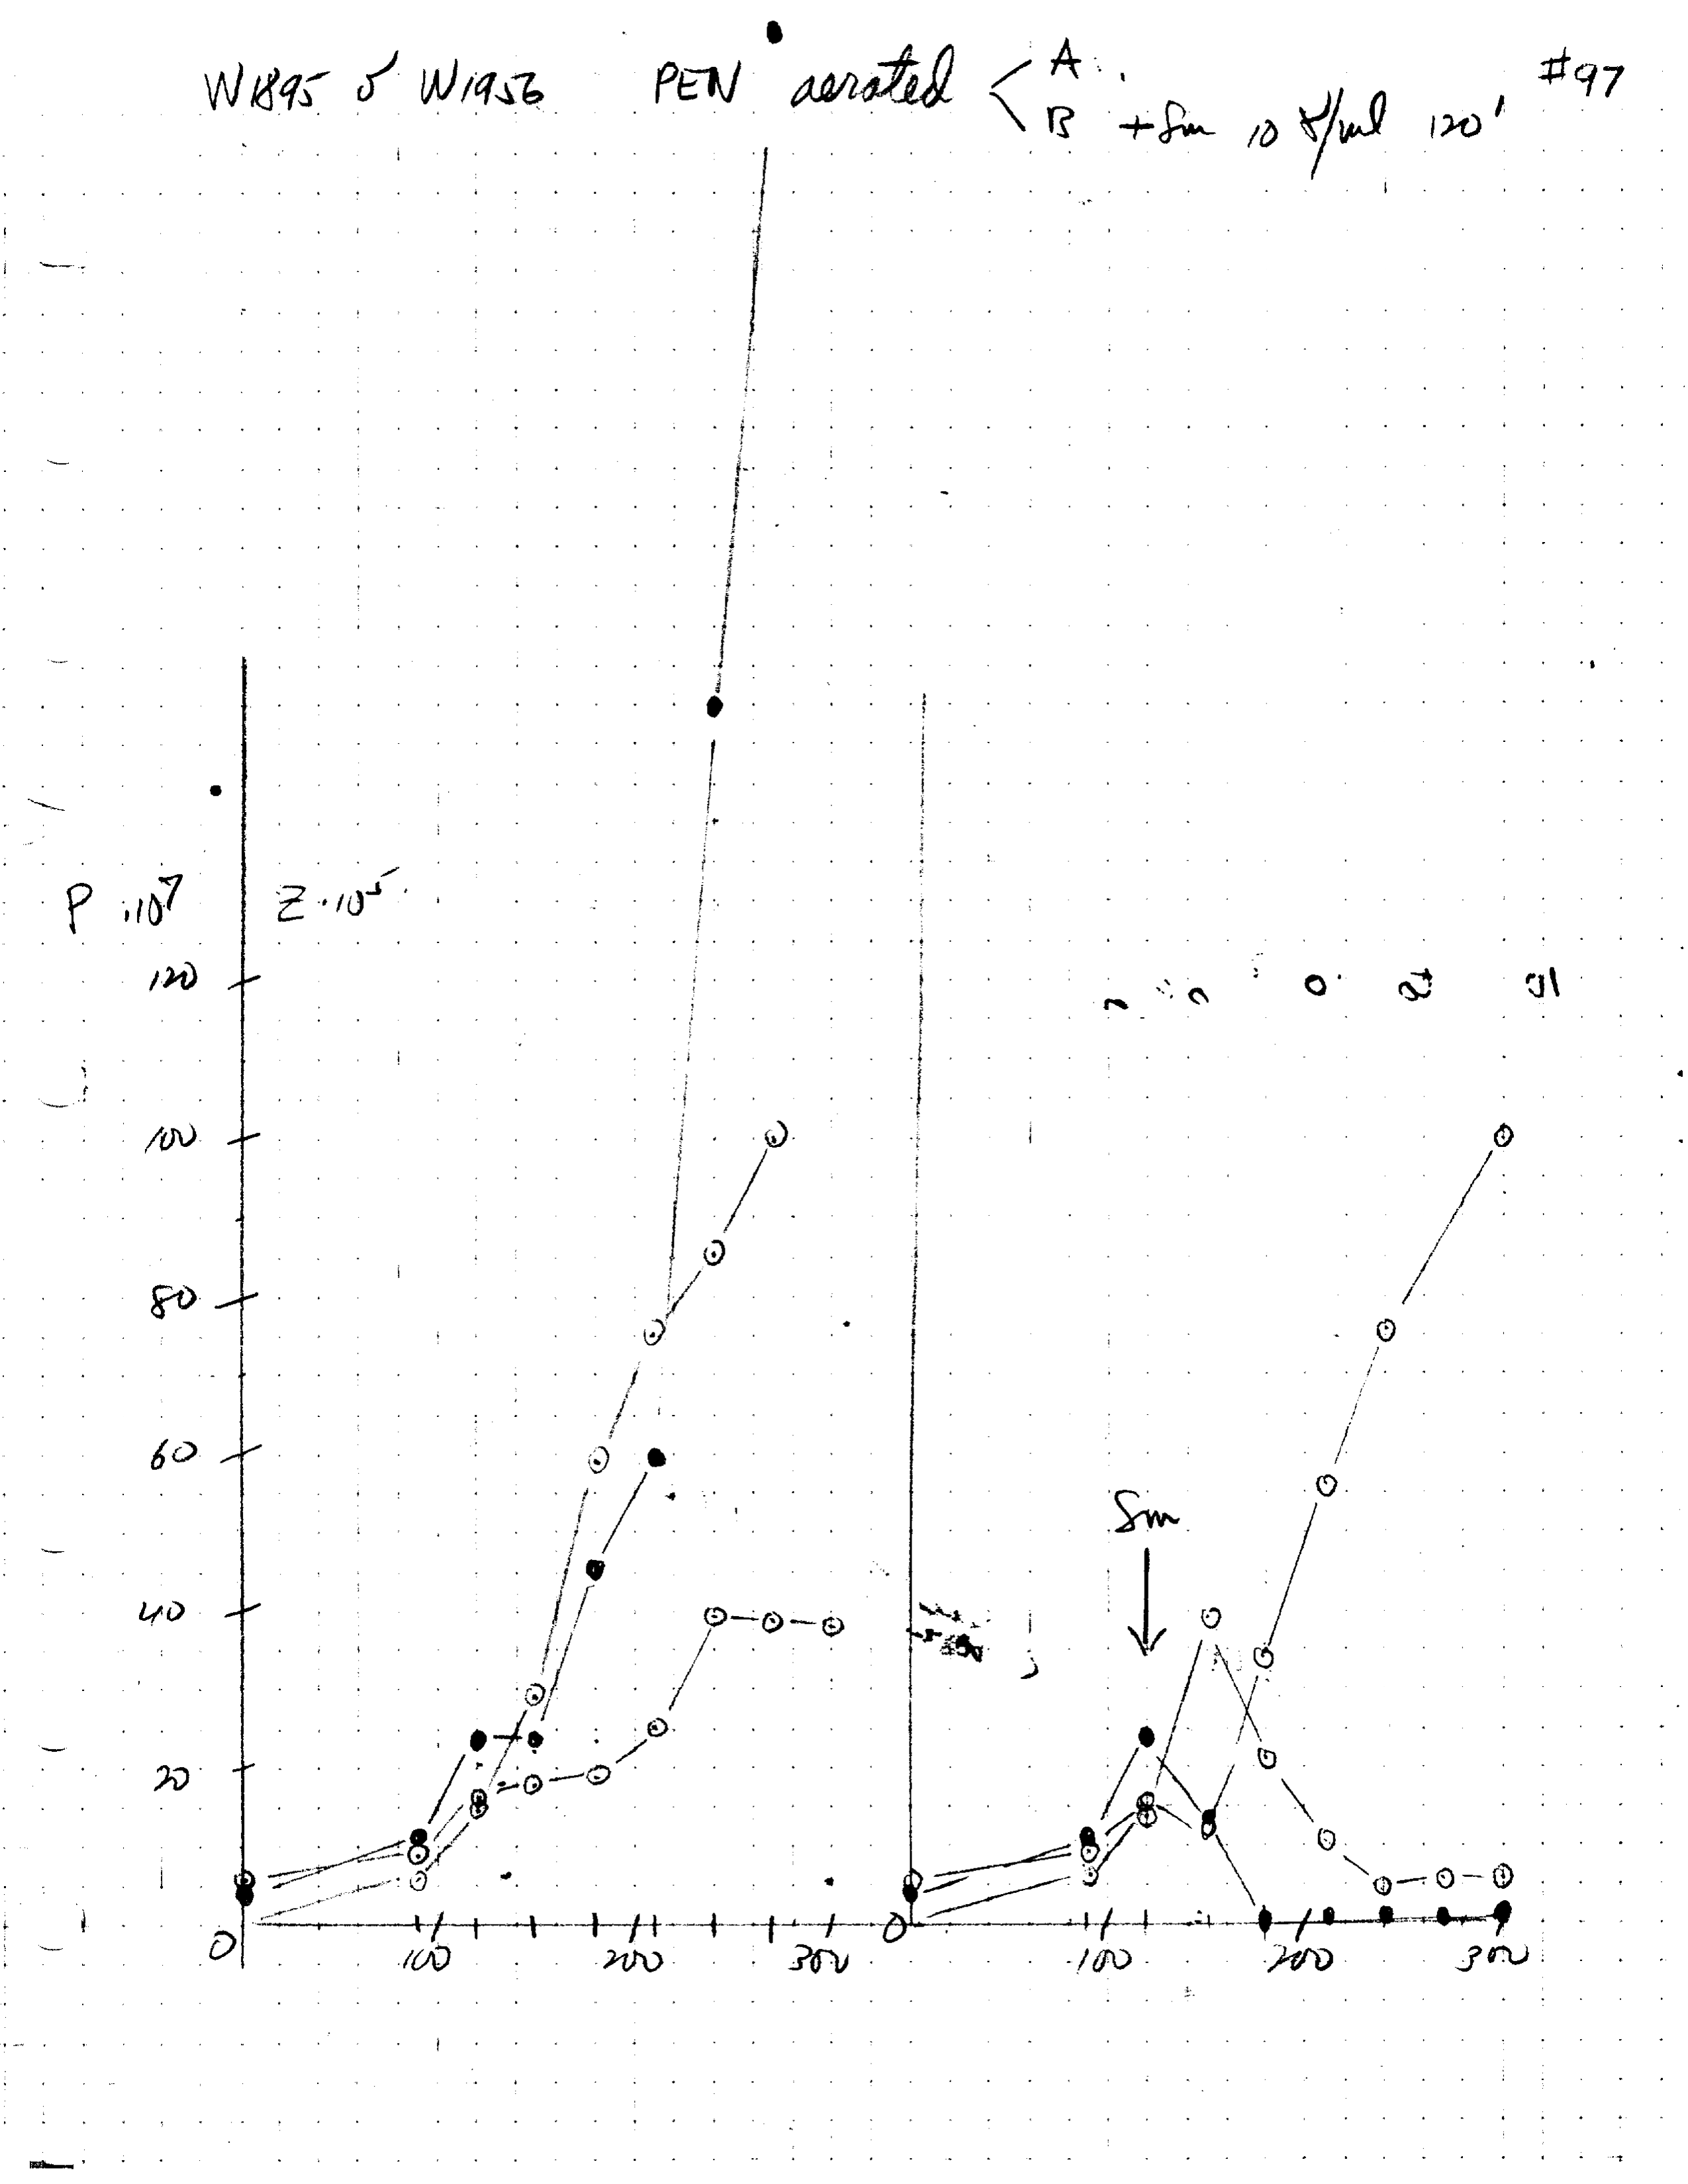 W1895 ♂ W1956 PEN aerated < A #97
B + Sm 10 γ/ml 120'
P ·10⁷ Z·10⁵
120
100
80
60
Sm
40
20
0 100 200 300 0 100 200 300